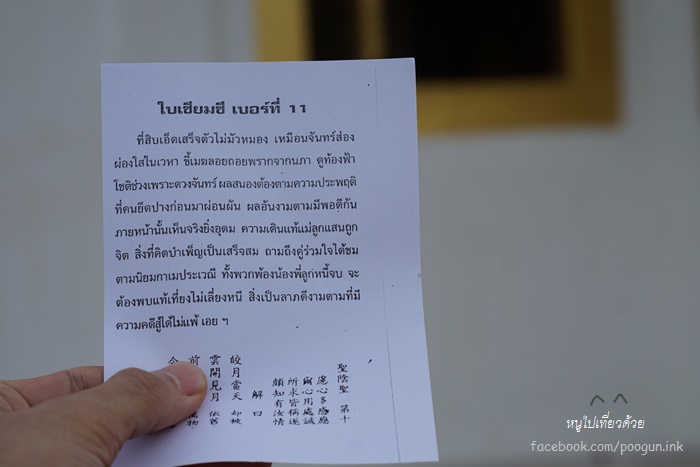 ใบเซียมซี เบอร์ที่ 11
ที่สิบเอ็ดเสร็จตัวไม่มัวหมอง เหมือนจันทร์ส่อง
ผ่องใสในเวหา ขี้เมฆลอยถอยพรากจากนภา ดูท้องฟ้า
โชติช่วงเพราะดวงจันทร์ ผลสนองต้องตามความประพฤติ
ที่คนยึดปางก่อนมาผ่อนผัน ผลอันงามตามมีพอดีกัน
ภายหน้านั้นเห็นจริงยิ่งอุดม ความเดินแท้แม่ลูกแสนถูก
จิต สิ่งที่คิดบำเพ็ญเป็นเสร็จสม ถามถึงคู่ร่วมใจได้ชม
ตามนิยมกาเมประเวณี ทั้งพวกพ้องน้องพี่ลูกหนี้จบ จะ
ต้องพบแท้เที่ยงไม่เลี่ยงหนี สิ่งเป็นลาภดีงามตามที่มี
ความคดีสู้ได้ไม่แพ้ เอย ฯ
聖陰聖 第十
慮心多應
爾心用誠
所求稱遂
頗知有汝情
解曰
皎月當天 却被
雲開見月 依舊
前
今
หนูไปเที่ยวด้วย
facebook.com/poogun.ink